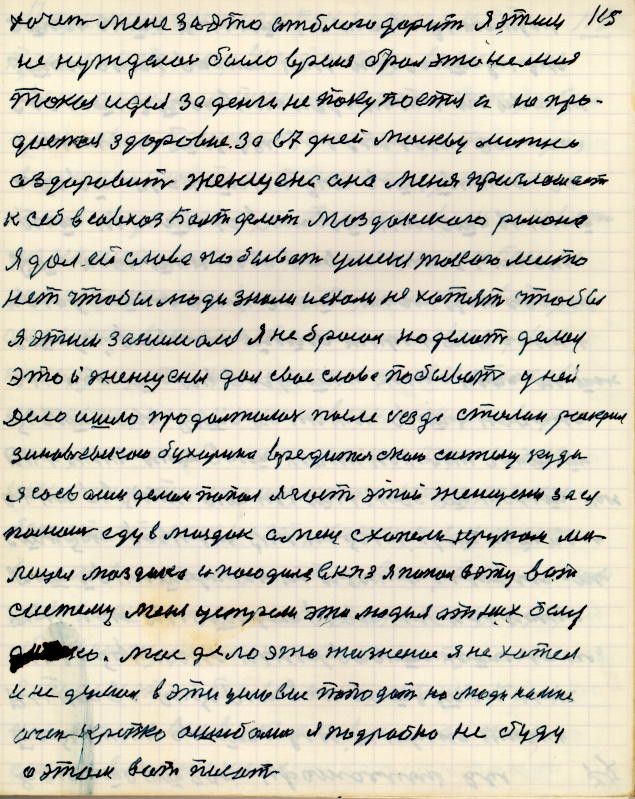 хочет мене за это отблогодорит я этим 115
не нуждался было время брал это не моя
токая идея за денги не покупоется и не про-
доется здоровие. За 67 дней Москву можно
оздоровит женщена она меня приглошает
к себ в совхоз Моздокского раиона
я дал ей слова побыват у меня токого место
нет чтобы люди знали и ехали не хотят чтобы
я этим занимолся я не бросал но делат делал
этой женщены дал свое слово побыват у ней
дело ишло продолжалос после сезда сталин раскрил
зиновевского бухарина вредителскою систему куда
я со своим делом попал я чост этой женщены за ей
еду в моздок а мене схопели кругом ми-
лиция моздока и посодила в КПЗ я попал в эту вот
систему меня эти люди я от них
мое дело это жизненое я не хотел
и не думал в эти условие пոподат но люди на мне
очен крепко ошибалис я подробно не буду
о этом вот писат